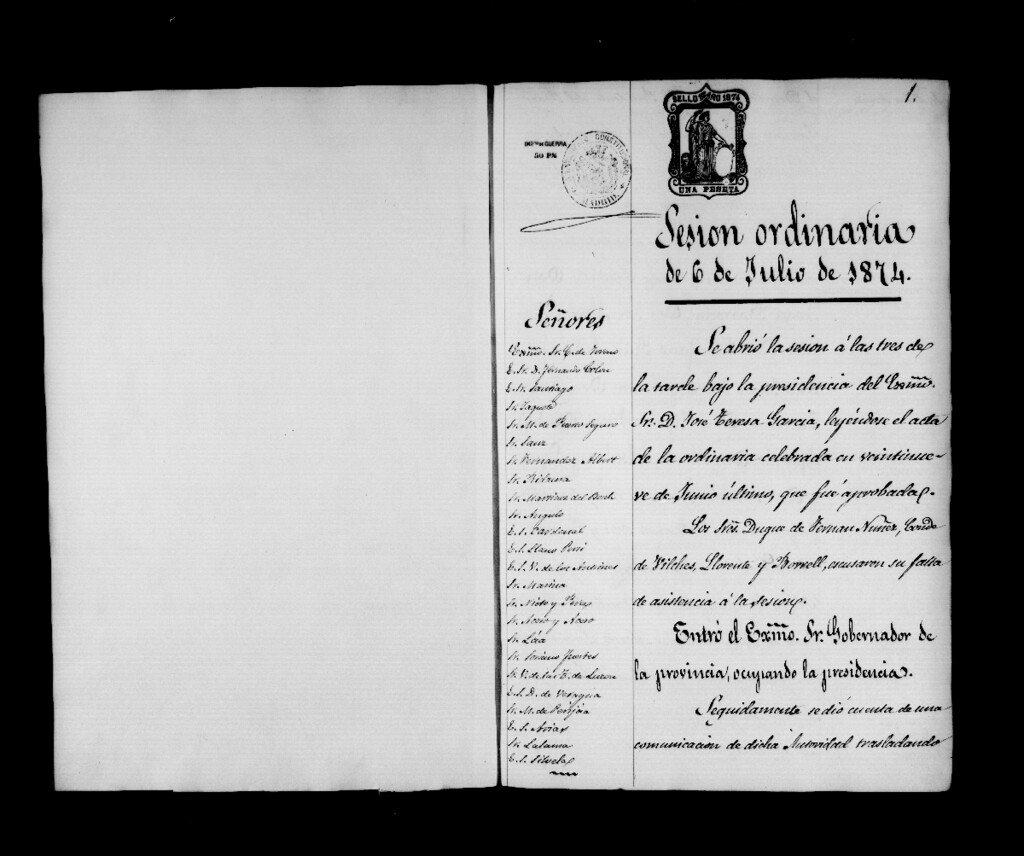 1.
SELLO AÑO 1874
UNA PESETA
IMPTO DE GUERRA
50 PS
CONSTITUCIONAL
MADRID
Sesion ordinaria
de 6 de Julio de 1874.
Señores
Exmo. Sr. C. de Toreno
E. Sr. D. Fernando Colon
E. Sr. Santiago
Sr. Jaquete
Sr. M. de Puerto Seguro
Sr. Sanz
Sr. Fernandez Albert
Sr. Ribera
Sr. Martinez del Bosch
Sr. Angulo
E. S. Cardenal
E. S. Llano Persi
E. S. V. de los Antrines
Sr. Marina
Sr. Nieto y Perez
Sr. y
Sr.
Sr. Soriano Fuertes
Sr. V. de las T. de Luzon
E. S. D. de Veragua
Sr. M. de
E. S.
Sr. Lalama
E. S. Silvela
Se abrió la sesion á las tres de
la tarde bajo la presidencia del Exmo.
Sr. D. José Teresa Garcia, leyéndose el acta
de la ordinaria celebrada en veintinue-
ve de Junio último, que fué aprobada.
Los Sres. Duque de Fernan Nuñez, Conde
de Vilches, Llorente y Borrell, escusaron su falta
de asistencia á la sesion.
Entró el Exmo. Sr. Gobernador de
la provincia, ocupando la presidencia.
Seguidamente se dió cuenta de una
comunicacion de dicha Autoridad trasladando